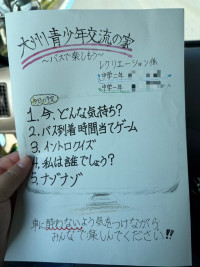 大洲青少年交流の家
～バスで楽しもう～
レクリエーション係
中学二年
中学一年
今日の予定
1. 今、どんな気持ち?
2. バス到着時間当てゲーム
3. イントロクイズ
4. 私は誰でしょう?
5. ナゾナゾ
車に酔わないよう気をつけながら
みんなで楽しんでください!!